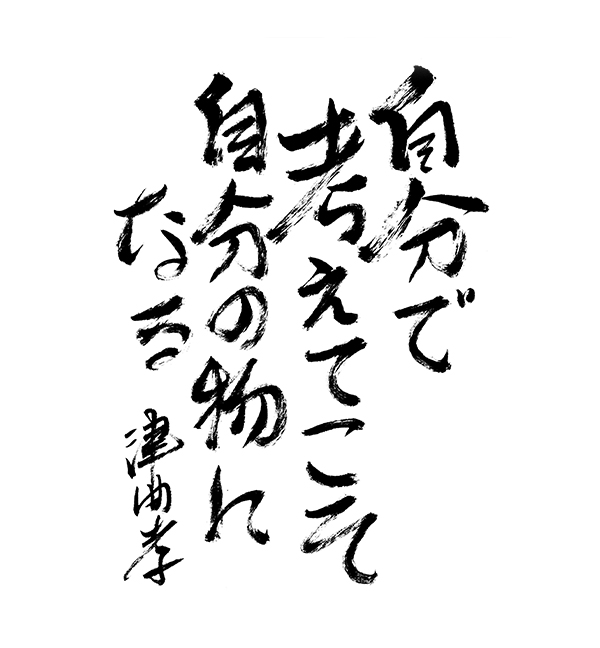 自分で
考えてこそ
自分の物に
なる
津曲孝